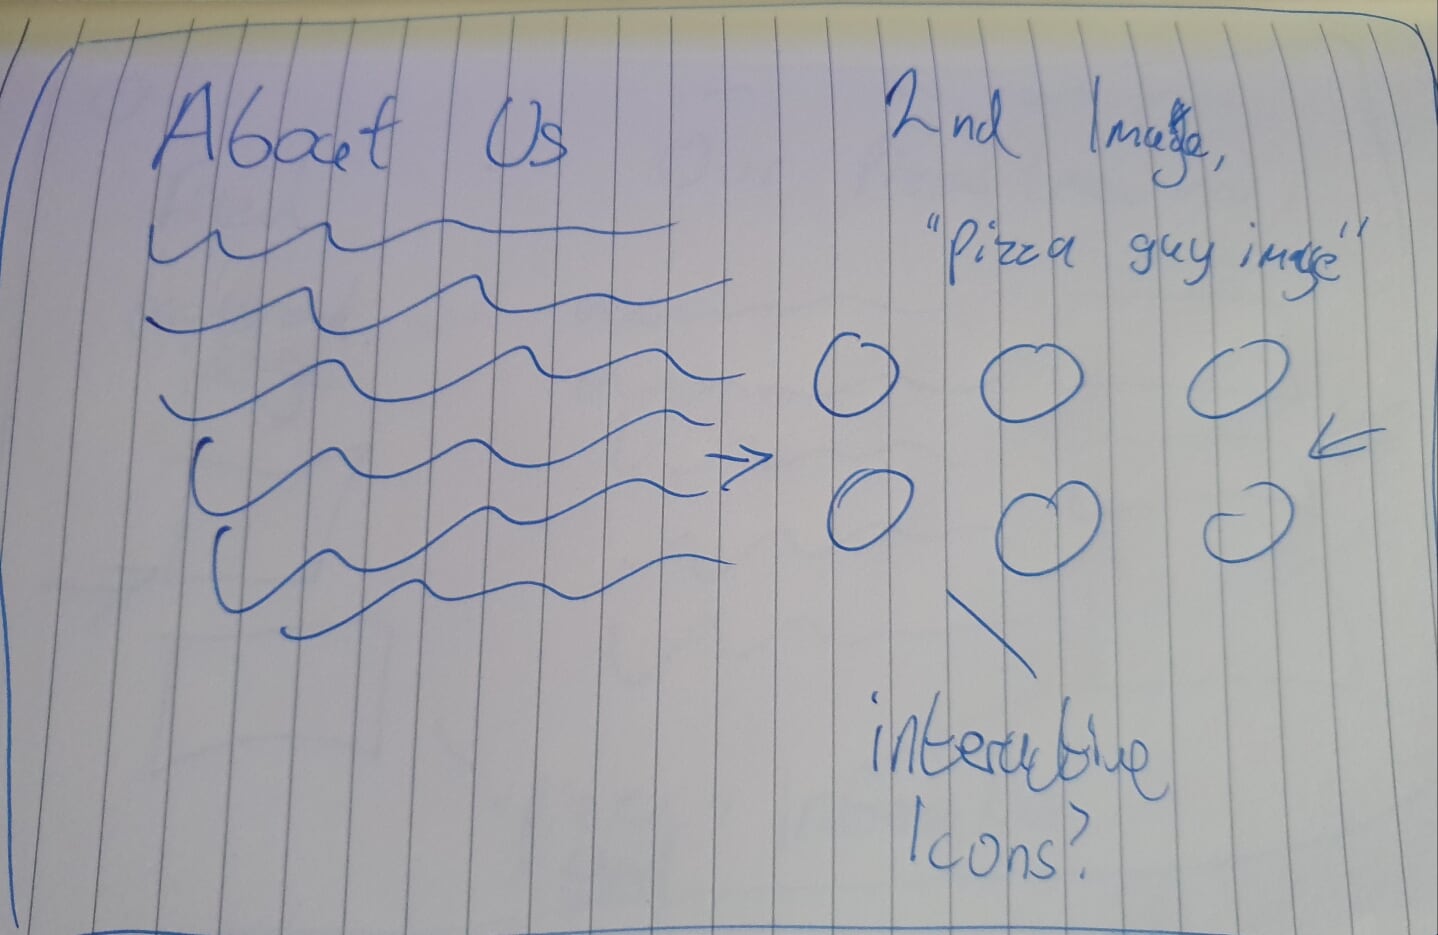 About Us
2nd Image,
"pizza guy image"
interactive
Icons?